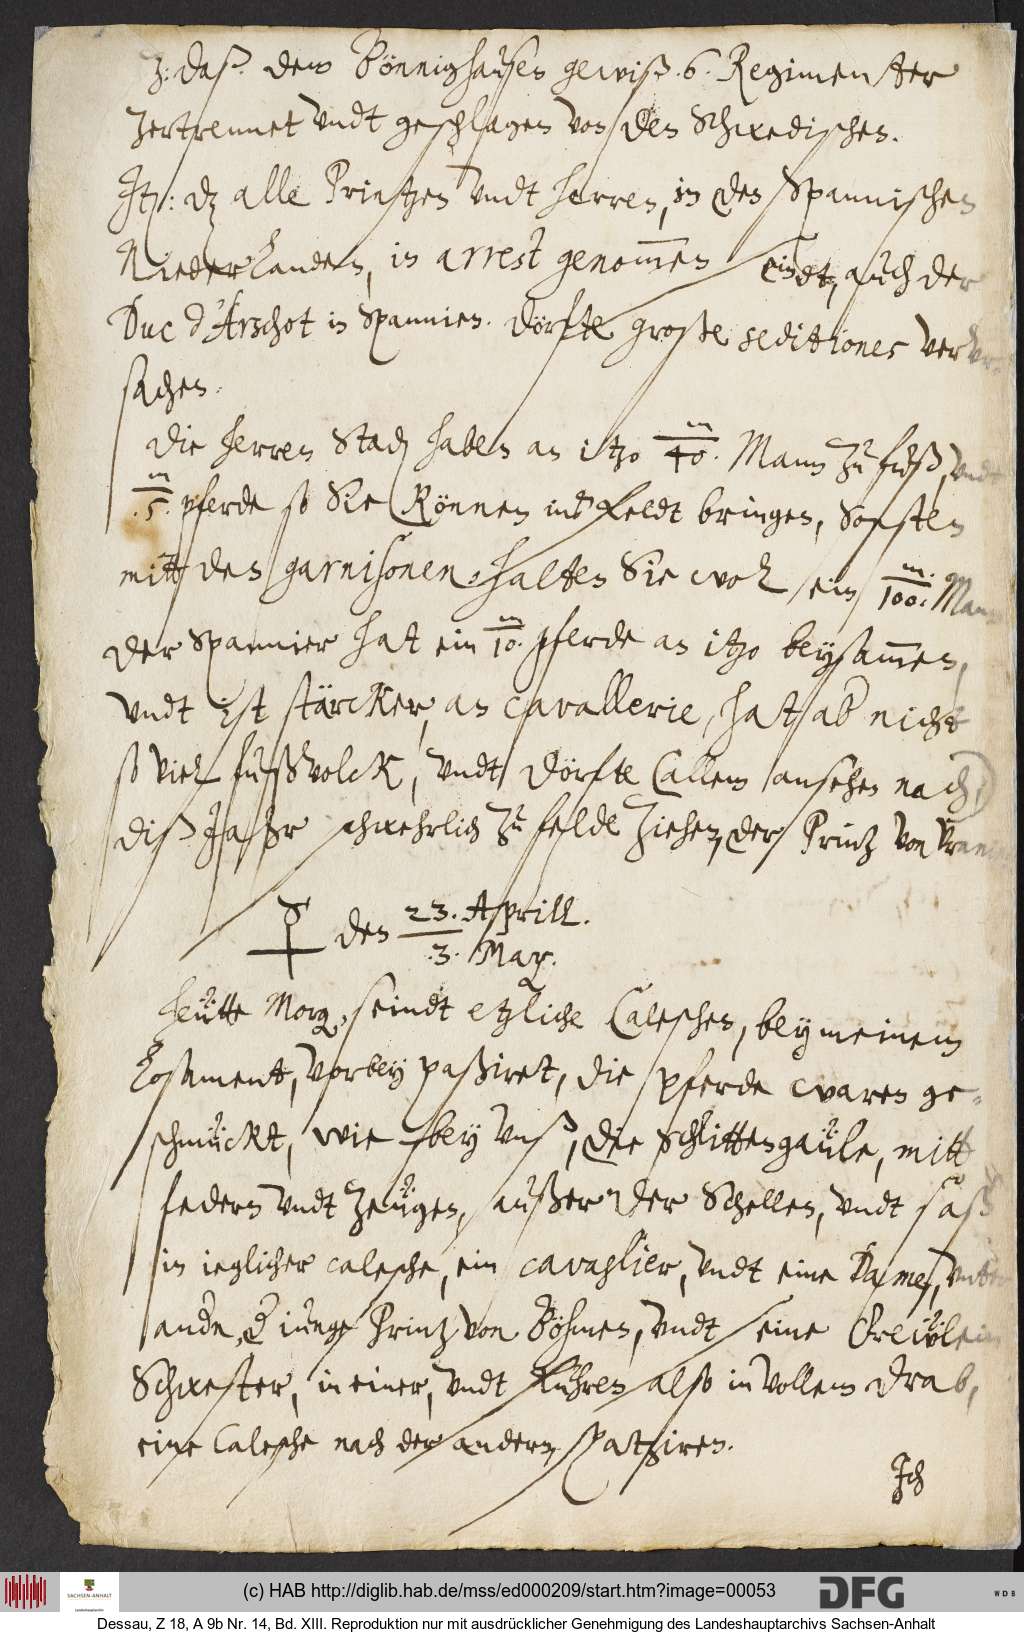 3: daß. dem Bönnighausen gewiß .6. Regimenter
zertrennet vndt geschlagen von den Schwedischen.
Jt: dz alle Printzen vndt herren, in den Spannischen
Niederlanden, in arrest genom̅en seindt, auch der
Duc d'Arschot in Spannien. dörfte große seditiones vervr-
sachen.
Die herren Stad haben an itzo m/40. Mann zu fuß, vndt
m/.5. pferde so Sie können ins feldt bringen, Sonsten
mitt den garnisonen halten Sie wol ein m/100. Mann
der Spannier hat ein m/10. pferde an itzo beysam̅en,
vndt ist stärcker an cavallerie, hat ab nicht
so viel fußvolck, vndt dörfte allem ansehen nach,
diß Jahr schwehrlich zu felde ziehen, der Printz von Vranien
♀ den 23. Aprill.
.3. May.
Heütte Morg. seindt etzliche Caleschen, bey meinem
losament, vorbey paßiret, die pferde waren ge-
schmückt, wie bey vnß, die Schlittengaüle, mitt
federn vndt zeügen, außer der Schellen, vndt saß
in ieglicher calesche, ein cavaglier, vndt eine Dame, vnter
andn. iunge Printz von Böhmen, vndt seine Freülein
Schwester, in einer, vndt fuhren also in vollem drab,
eine Calesche nach der andern, spatziren.
Jch
(c) HAB http://diglib.hab.de/mss/ed000209/start.htm?image=00053
SACHSEN-ANHALT
Landeshauptarchiv
DFG
WDB
Dessau, Z 18, A 9b Nr. 14, Bd. XIII. Reproduktion nur mit ausdrücklicher Genehmigung des Landeshauptarchivs Sachsen-Anhalt